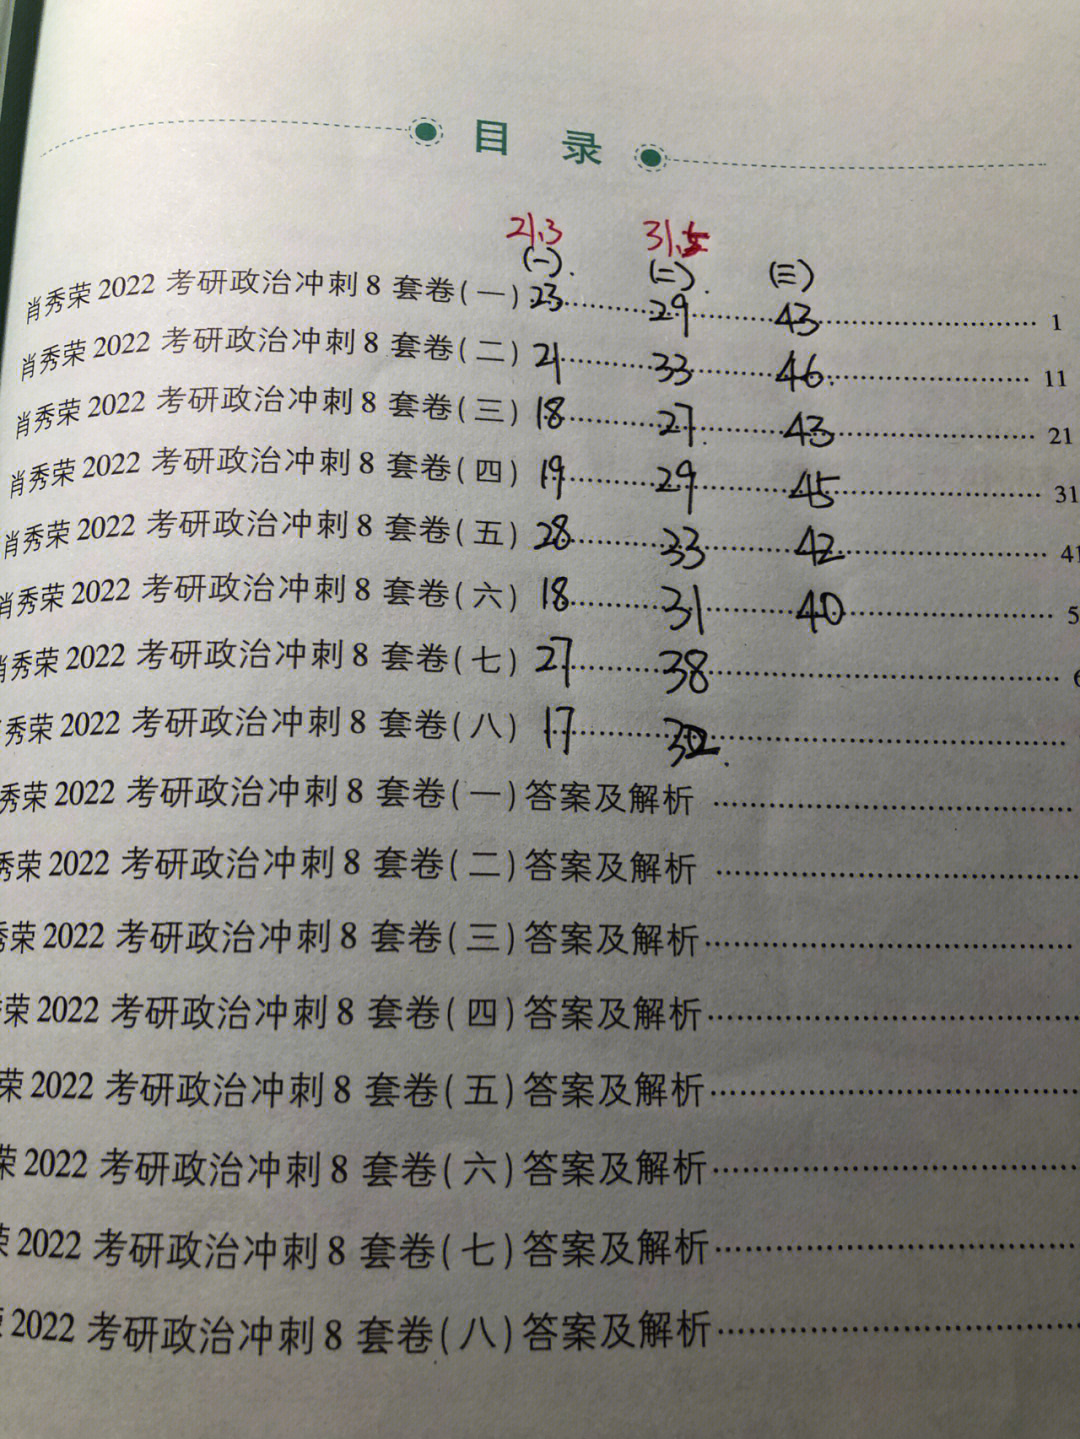 目 录
21.3 31.5
(一). (二). (三)
肖秀荣2022 考研政治冲刺8 套卷(一) 23 29 43 1
肖秀荣2022 考研政治冲刺8 套卷(二) 21 33 46. 11
肖秀荣2022 考研政治冲刺8 套卷(三) 18 27. 43 21
肖秀荣2022 考研政治冲刺8 套卷(四) 19 29 45 31
肖秀荣2022 考研政治冲刺8 套卷(五) 28 33 42 41
肖秀荣2022 考研政治冲刺8 套卷(六) 18 31 40 5
肖秀荣2022 考研政治冲刺8 套卷(七) 27 38
秀荣2022 考研政治冲刺8 套卷(八) 17 32.
秀荣2022 考研政治冲刺8 套卷(一)答案及解析
秀荣2022 考研政治冲刺8 套卷(二)答案及解析
秀荣2022 考研政治冲刺8 套卷(三)答案及解析
荣2022 考研政治冲刺8 套卷(四)答案及解析
荣2022 考研政治冲刺8 套卷(五)答案及解析
荣2022 考研政治冲刺8 套卷(六)答案及解析
荣2022 考研政治冲刺8 套卷(七)答案及解析
荣2022 考研政治冲刺8 套卷(八)答案及解析